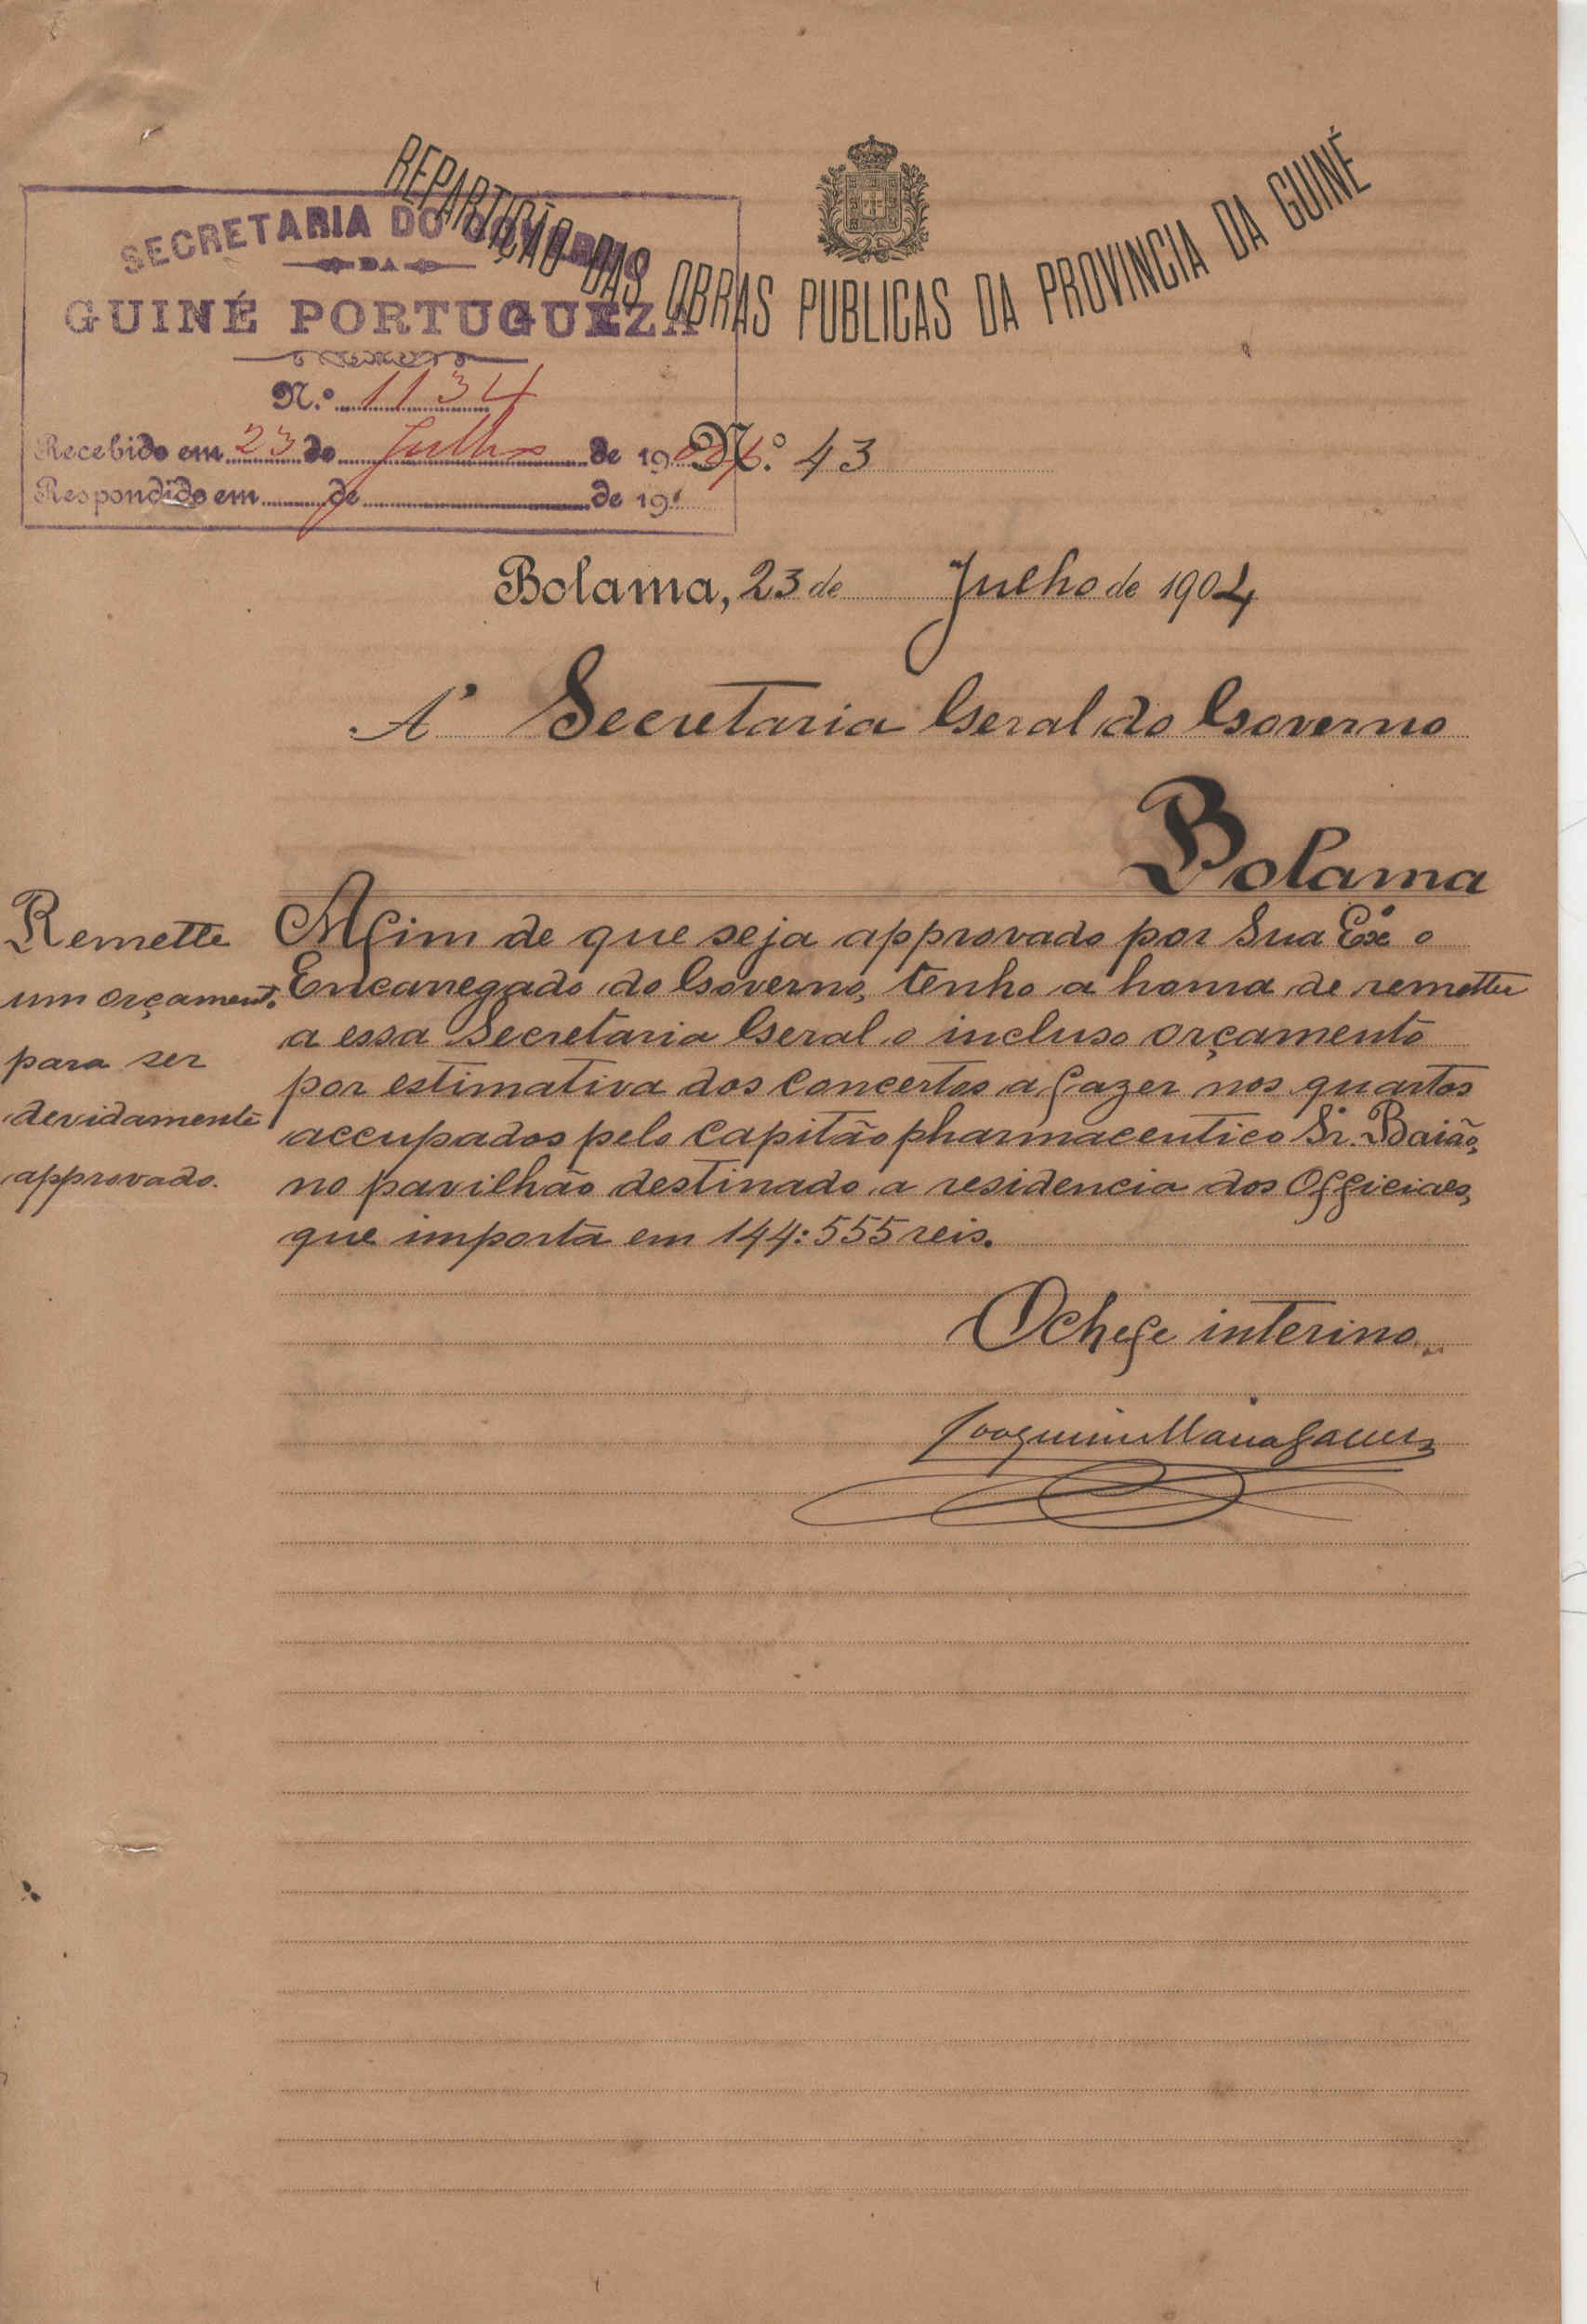 REPARTIÇÃO DAS OBRAS PUBLICAS DA PROVINCIA DA GUINÉ
SECRETARIA DO GOVERNO
DA
GUINÉ PORTUGUEZA
N.º 1134
Recebido em 23 de Julho de 1904
Respondido em de de 19
N.º 43
Bolama, 23 de Julho de 1904
A' Secretaria Geral do Governo
Bolama
Remette
um orçament.
para ser
devidamente
approvado.
Afim de que seja approvado por Sua Exª o
Encarregado do Governo, tenho a honra de remetter
a essa Secretaria Geral o incluso orçamento
por estimativa dos concertos a fazer nos quartos
accupados pelo capitão pharmaceutico Sr. Baião,
no pavilhão destinado a residencia dos Officiaes,
que importa em 144:555 reis.
O chefe interino
Joaquim Maria